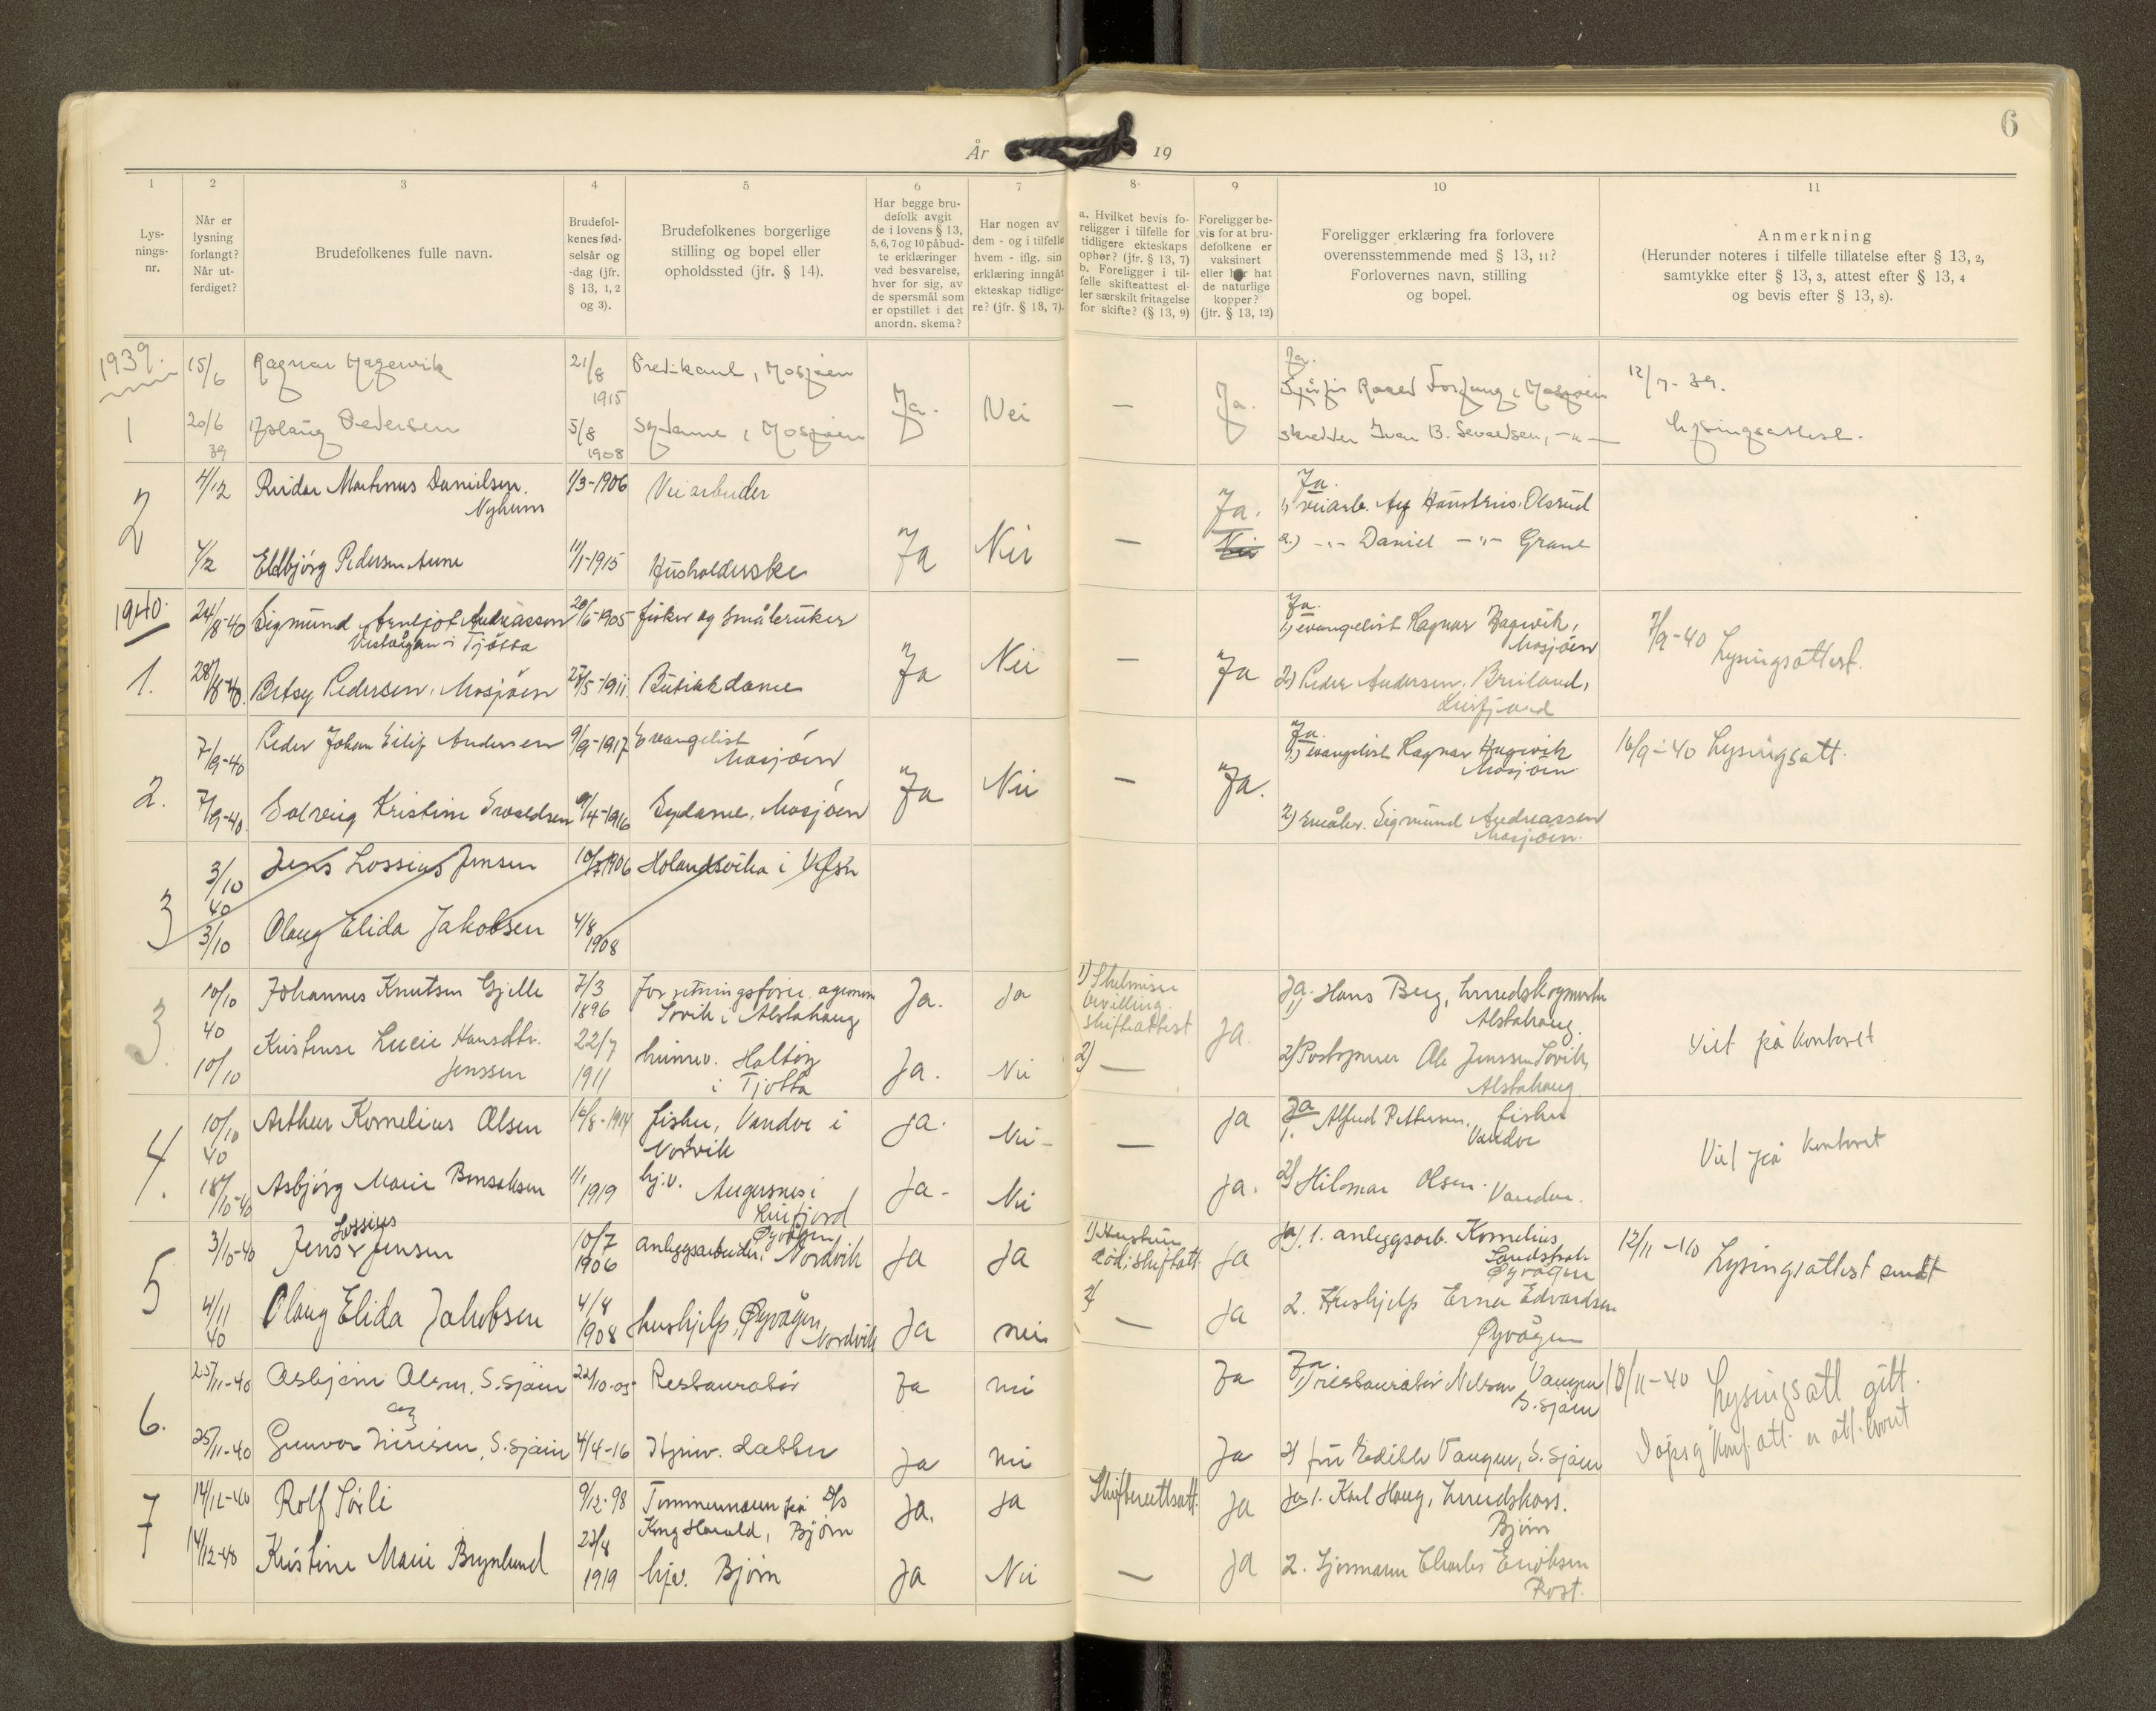 6
År 19
1 2 3 4 5 6 7 8 9 10 11
Lys-
nings-
nr.
Når er
lysning
forlangt?
Når ut-
ferdiget?
Brudefolkenes fulle navn.
Brudefol-
kenes fød-
selsår og
-dag (jfr.
§ 13, 1, 2
og 3).
Brudefolkenes borgerlige
stilling og bopel eller
opholdssted (jfr. § 14).
Har begge bru-
defolk avgit
de i lovens § 13,
5, 6, 7 og 10 påbud-
te erklæringer
ved besvarelse,
hver for sig, av
de spørsmål som
er opstillet i det
anordn. skema?
Har nogen av
dem - og i tilfelle
hvem - iflg. sin
erklæring inngått
ekteskap tidlige-
re? (jfr. § 13, 7).
a. Hvilket bevis fo-
religger i tilfelle for
tidligere ekteskaps
ophør? (jfr. § 13, 7)
b. Foreligger i til-
felle skifteattest el-
ler særskilt fritagelse
for skifte? (§ 13, 9)
Foreligger be-
vis for at bru-
defolkene er
vaksinert
eller har hat
de naturlige
kopper?
(jfr. § 13, 12)
Foreligger erklæring fra forlovere
overensstemmende med § 13, 11?
Forlovernes navn, stilling
og bopel.
Anmerkning
(Herunder noteres i tilfelle tillatelse efter § 13, 2,
samtykke efter § 13, 3, attest efter § 13, 4
og bevis efter § 13, 8).
1939.
1
15/6 Ragnar Hagevik 21/8 1915 Predikant, Mosjøen
20/6 39 Aslaug Pedersen 5/8 1908 Sydame, Mosjøen
Ja. Nei — Ja.
Ja.
Mosjøen
skredder Ivar B. Sevaldsen, -"-
12/7-39.
Lysingsattest.
2
4/12 Reidar Martinus Danielsen 1/3-1906 Veiarbeider
Nyhuus
4/12 Eldbjørg Pedersen Aune 11/1-1915 Husholderske
Ja Nei — Ja. Nei
Ja.
1) veiarb. Olsrud
2.) -"- Daniel -"- Grane
1940.
1.
24/8-40 Sigmund Arneljot Andreassen 20/6-1905 fisker og småbruker
Vistvågen i Tjøtta
28/8-40. Betsy Pedersen, Mosjøen 25/5-1911. Butikkdame
Ja Nei — Ja
Ja.
1) evangelist Ragnar Hagevik,
Mosjøen
2) Peder Andersen. Breiland,
Leirfjord
7/9-40 Lysingsattest.
2.
7/9-40 Peder Johan Eilif Andersen 9/9-1917 Evangelist
Mosjøen
7/9-40. Solveig Kristine Sevaldsen 9/4-1916 Sydame, Mosjøen
Ja Nei — Ja.
Ja.
1.) evangelist Ragnar Hagevik
Mosjøen.
2) småbr. Sigmund Andreassen
Mosjøen.
16/9-40 Lysingsatt.
3
3/10 40 Jens Lossius Jensen 10/7 1906 Holandsvika i Vefsn
3/10 Olaug Elida Jakobsen 4/8 1908
3.
10/10 40 Johannes Knutsen Gjelle 7/3 1896 forretningsfører, agronom
Søvik i Alstahaug
Ja. Ja
1) Skilsmisse
bevilling.
skifteattest
Ja.
Ja. 1) Hans Berg, herredskogmester
Alstahaug.
10/10 Kristense Lucie Hansdtr.
Jenssen
22/7 1911 heimev. Holtøy
i Tjøtta
Ja. Nei 2) —
2) Postopner Ole Jenssen Søvik,
Alstahaug.
Viet på kontoret
4.
10/10 40 Arthur Kornelius Olsen 16/8-1914 fisker, Vandve i
Nordvik
Ja. Nei — Ja
Ja
1. Alfred Pettersen, fisker
Vandve
18/10-40 Asbjørg Marie Bensaksen 1919 hj.v. Angersnes i
Leirfjord
Ja- Nei Ja.
2) Hilmar Olsen. Vandve.
Viet på kontoret
5
3/10-40 Jens Lossius Jensen 10/7 1906 anleggsarbeider, Øyvågen Nordvik
Ja Ja
1) Hustrun
død; skifteatt. Ja
Ja, 1. anleggsarb. Kornelius
Øyvågen
4/11 40 Olaug Elida Jakobsen 4/8 1908 hushjelp, Øyvågen, Nordvik
Ja nei 2) — Ja
2. Hushjelp Erna Edvardsen
Øyvågen
12/11-40 Lysingsattest sendt
6.
25/11-40 Asbjørn Olsen, S.sjøen 22/10-05 Restauratør
Ja nei Ja
Ja.
1) restauratør Nelson Vangen
S.sjøen
25/11-40 Gunvor Iversen, S.sjøen 4/4-16 Hjmv. datter
Ja nei Ja
2) fru Edith Vangen, S.sjøen
18/11-40 Lysingsatt gitt.
Dåps og konf.att. er att. levert
7
14/12-40 Rolf Sørli 9/12-98 Tømmermann på D/S
Kong Harald, Bjørn
Ja. Ja Skifterettsatt. Ja
Ja 1. Karl Haug, herredskass.
Bjørn
14/12-40 Kristine Marie Brynlund 23/8 1919 hjv. Bjørn
Ja Nei — Ja
2. Sjømann Charles Eriksen
Røst.